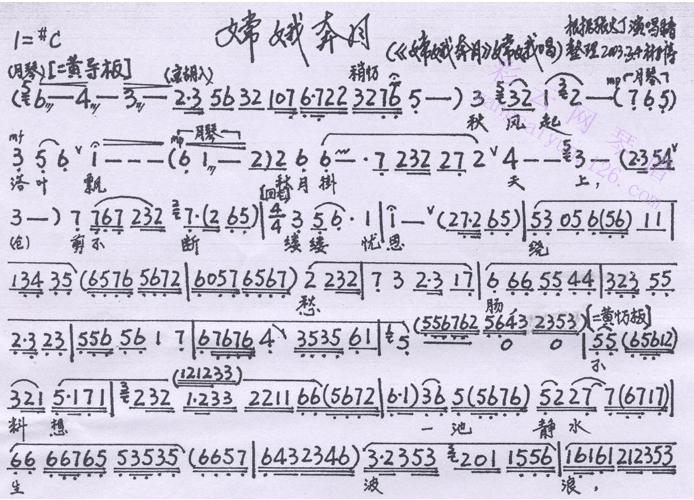 嫦娥奔月
1=#C
(《嫦娥奔月》嫦娥唱)
根据张火丁演唱录音
整理 2003.
(月琴) [二黄导板] (京胡入) 稍慢 mp 月琴
(5 6 — 4 — 3 — 2·3 56 32 107 6·722 3276 5 —) 3 532 1 32 — (7 6 5)
秋 风 起
mf mp 月琴
3 5 6 ˅ i — — — (6 1 — 2) 2 6 6 — · 7 232 27 2 ˅ 4 — — 3 — (2·354
落 叶 飘 秋 月 掛 天 上,
[回龙]
3 —) 7 767 232 7·(2 65) | 4/4 3 5 6 · 1 | i — ˅ (27·2 65) | 53 05 6(56) 11 |
(仓) 剪 不 断 缕 缕 忧 思 绕
134 35 (6576 5672 | 6057 6567) 2 232 | 7 3 2·3 17 | 6 66 55 44 | 323 55
愁 肠
(556762 5643 2353) [二黄慢板]
2·3 23 | 556 56 1 7 | 67676 4 3535 61 | 5 0 0 | 55 (65612)
不
(121233)
321 5·171 | 232 1·233 2211 66 (5672 | 6·1) 36 5 (5676) 52 27 7 (6717) |
料 想 一 池 静 水
66 66765 53535 (6657 | 6432346) 3·2353 201 1556 | 16161 212353
生 波 浪,